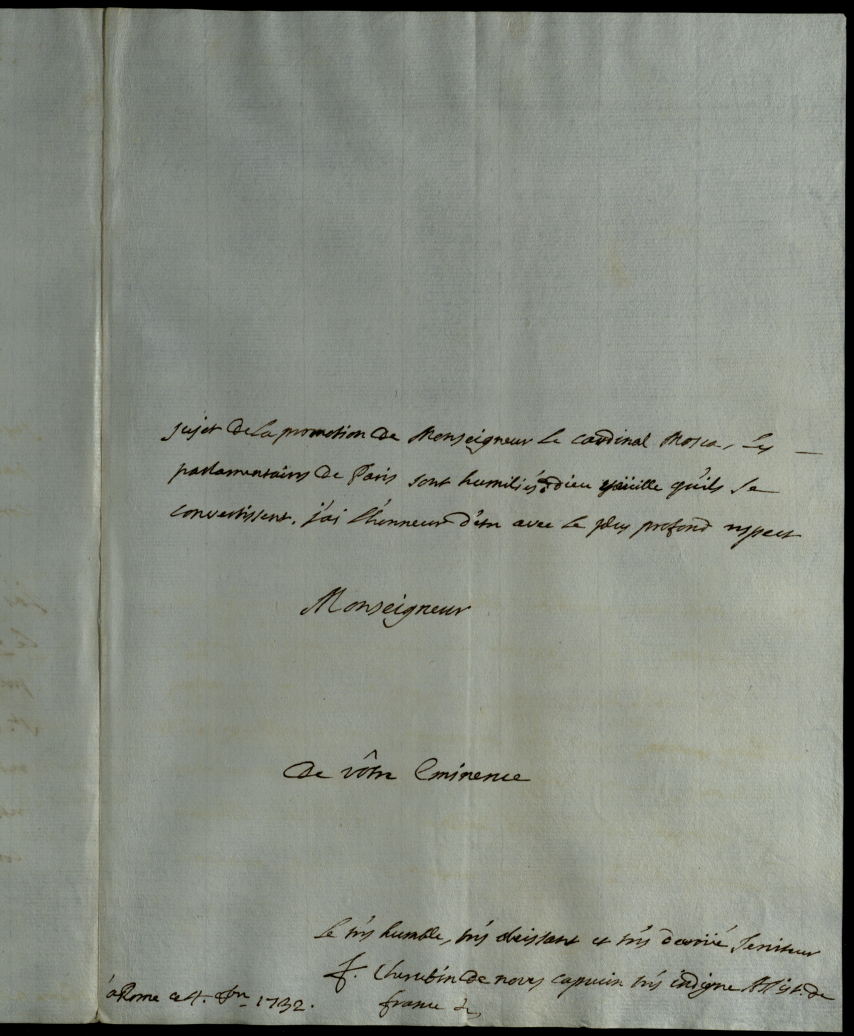 sujet de la promotion de Monseigneur le cardinal Mosca, les
parlamentaires de Paris sont humiliés dieu veüille qu'ils se
convertissent. j'ai l'honneur d'etre avec le plus profond respect
Monseigneur
De vôtre Eminence
Le trés humble, trés obeissant et trés devoüé serviteur
f. Cherubin de noves capucin trés indigne Assist. de
france
à Rome ce 4. 1732.